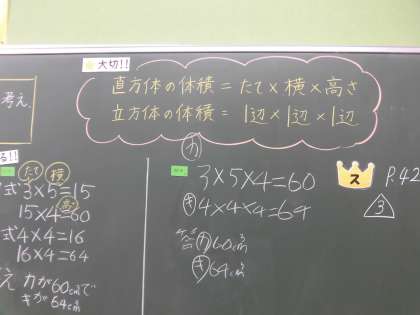 大切!!
直方体の体積 = たて × 横 × 高さ
立方体の体積 = 1辺 × 1辺 × 1辺
考え
る!!
たて 横
式 3×5=15
高さ
15×4=60
式 4×4=16
16×4=64
え カが60cm³で
キが64cm³
カ
3×5×4=60
キ 4×4×4=64
答 カ 60cm³
キ 64cm³
ス
P.42
3